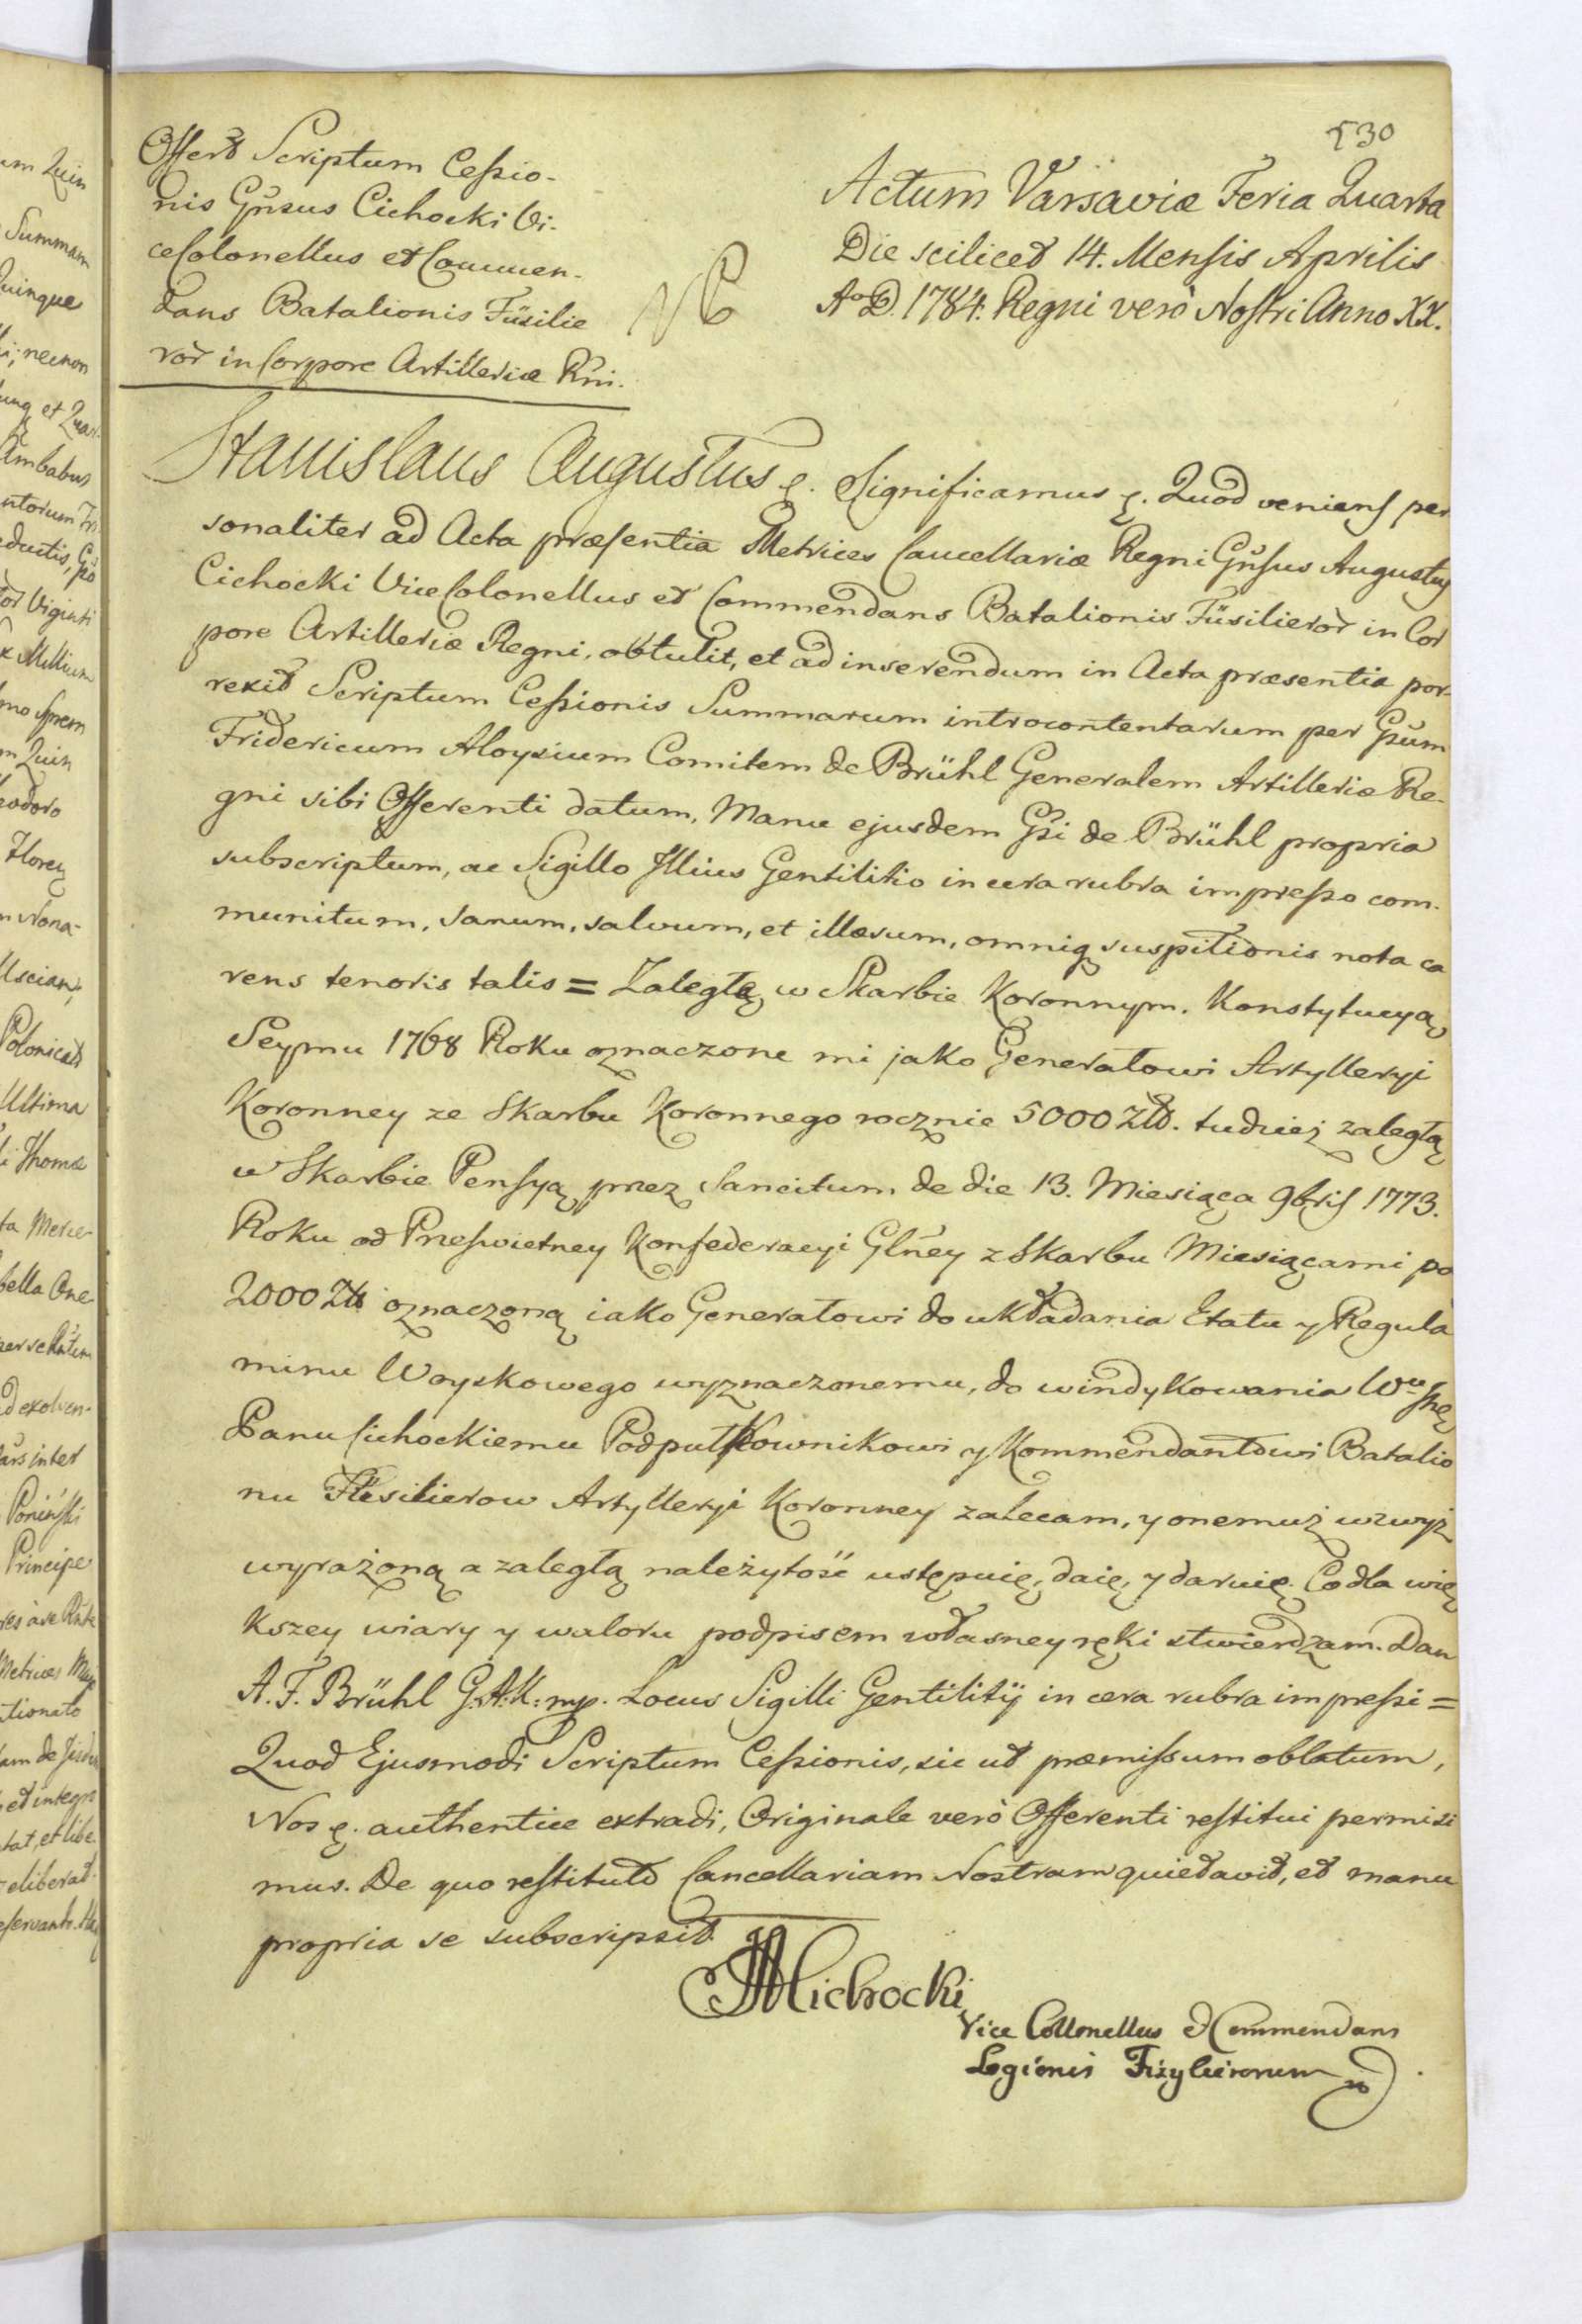 530
Offert Scriptum Cessio-
nis Gnsus Cichocki Vi-
ceColonellus et Commen-
dans Batalionis Füsilie
ror in Corpore Artilleriæ Rni.
Actum Varsaviæ Feria Quarta
Die scilicet 14. Mensis Aprilis
Ao D. 1784. Regni verò Nostri Anno XX.
Stanislaus Augustus &. Significamus &. Quod veniens per
sonaliter ad Acta præsentia Metrices Cancellariæ Regni Gnsus Augustus
Cichocki ViceColonellus et Commendans Batalionis Füsilieror in Cor
pore Artilleriæ Regni, obtulit, et ad inserendum in Acta præsentia por-
rexit Scriptum Cessionis Summarum introcontentarum per Gsum
Fridericum Aloysium Comitem de Brühl Generalem Artilleriæ Re-
gni sibi Offerenti datum, Manu ejusdem Gsi de Brühl propria
subscriptum, ac Sigillo Illius Gentilitio in cera rubra impresso com-
munitum, sanum, salvum, et illæsum, omniq suspitionis nota ca
rens tenoris talis = Zaległą w Skarbie Koronnym. Konstytucyą
Seymu 1768 Roku oznaczone mi jako Generałowi Artylleryi
Koronney ze Skarbu Koronnego rocznie 5000 Złł. tudzież zaległą
w Skarbie Pensyą przez Sancitum de die 13. Miesiąca 9bris 1773.
Roku od Prześwietney Konfederacyi Glney z Skarbu Miesiącami po
2000 Zł oznaczoną iako Generałowi do układania Etatu y Regula
minu Woyskowego wyznaczonemu, do windykowania Wu
Panu Cichockiemu Podpułkownikowi y Kommendantowi Batalio
nu Füsilierow Artylleryi Koronney zalecam, y onemuż wzwyż
wyrażoną a zaległą należytość ustępuię, daię, y daruię. Co dla wię
kszey wiary y waloru podpisem własney ręki stwierdzam. Dan
A. F. Brühl G. A. K: mp. Locus Sigilli Gentilitij in cera rubra impressi =
Quod Ejusmodi Scriptum Cessionis, sic ut præmissum oblatum,
Nos &. authentice extradi, Originale verò Offerenti restitui permisi
mus. De quo restituto Cancellariam Nostram quietavit, et manu
propria se subscripsit.
Cichocki
Vice Collonellus et Commendans
Legionis Fizylierorum